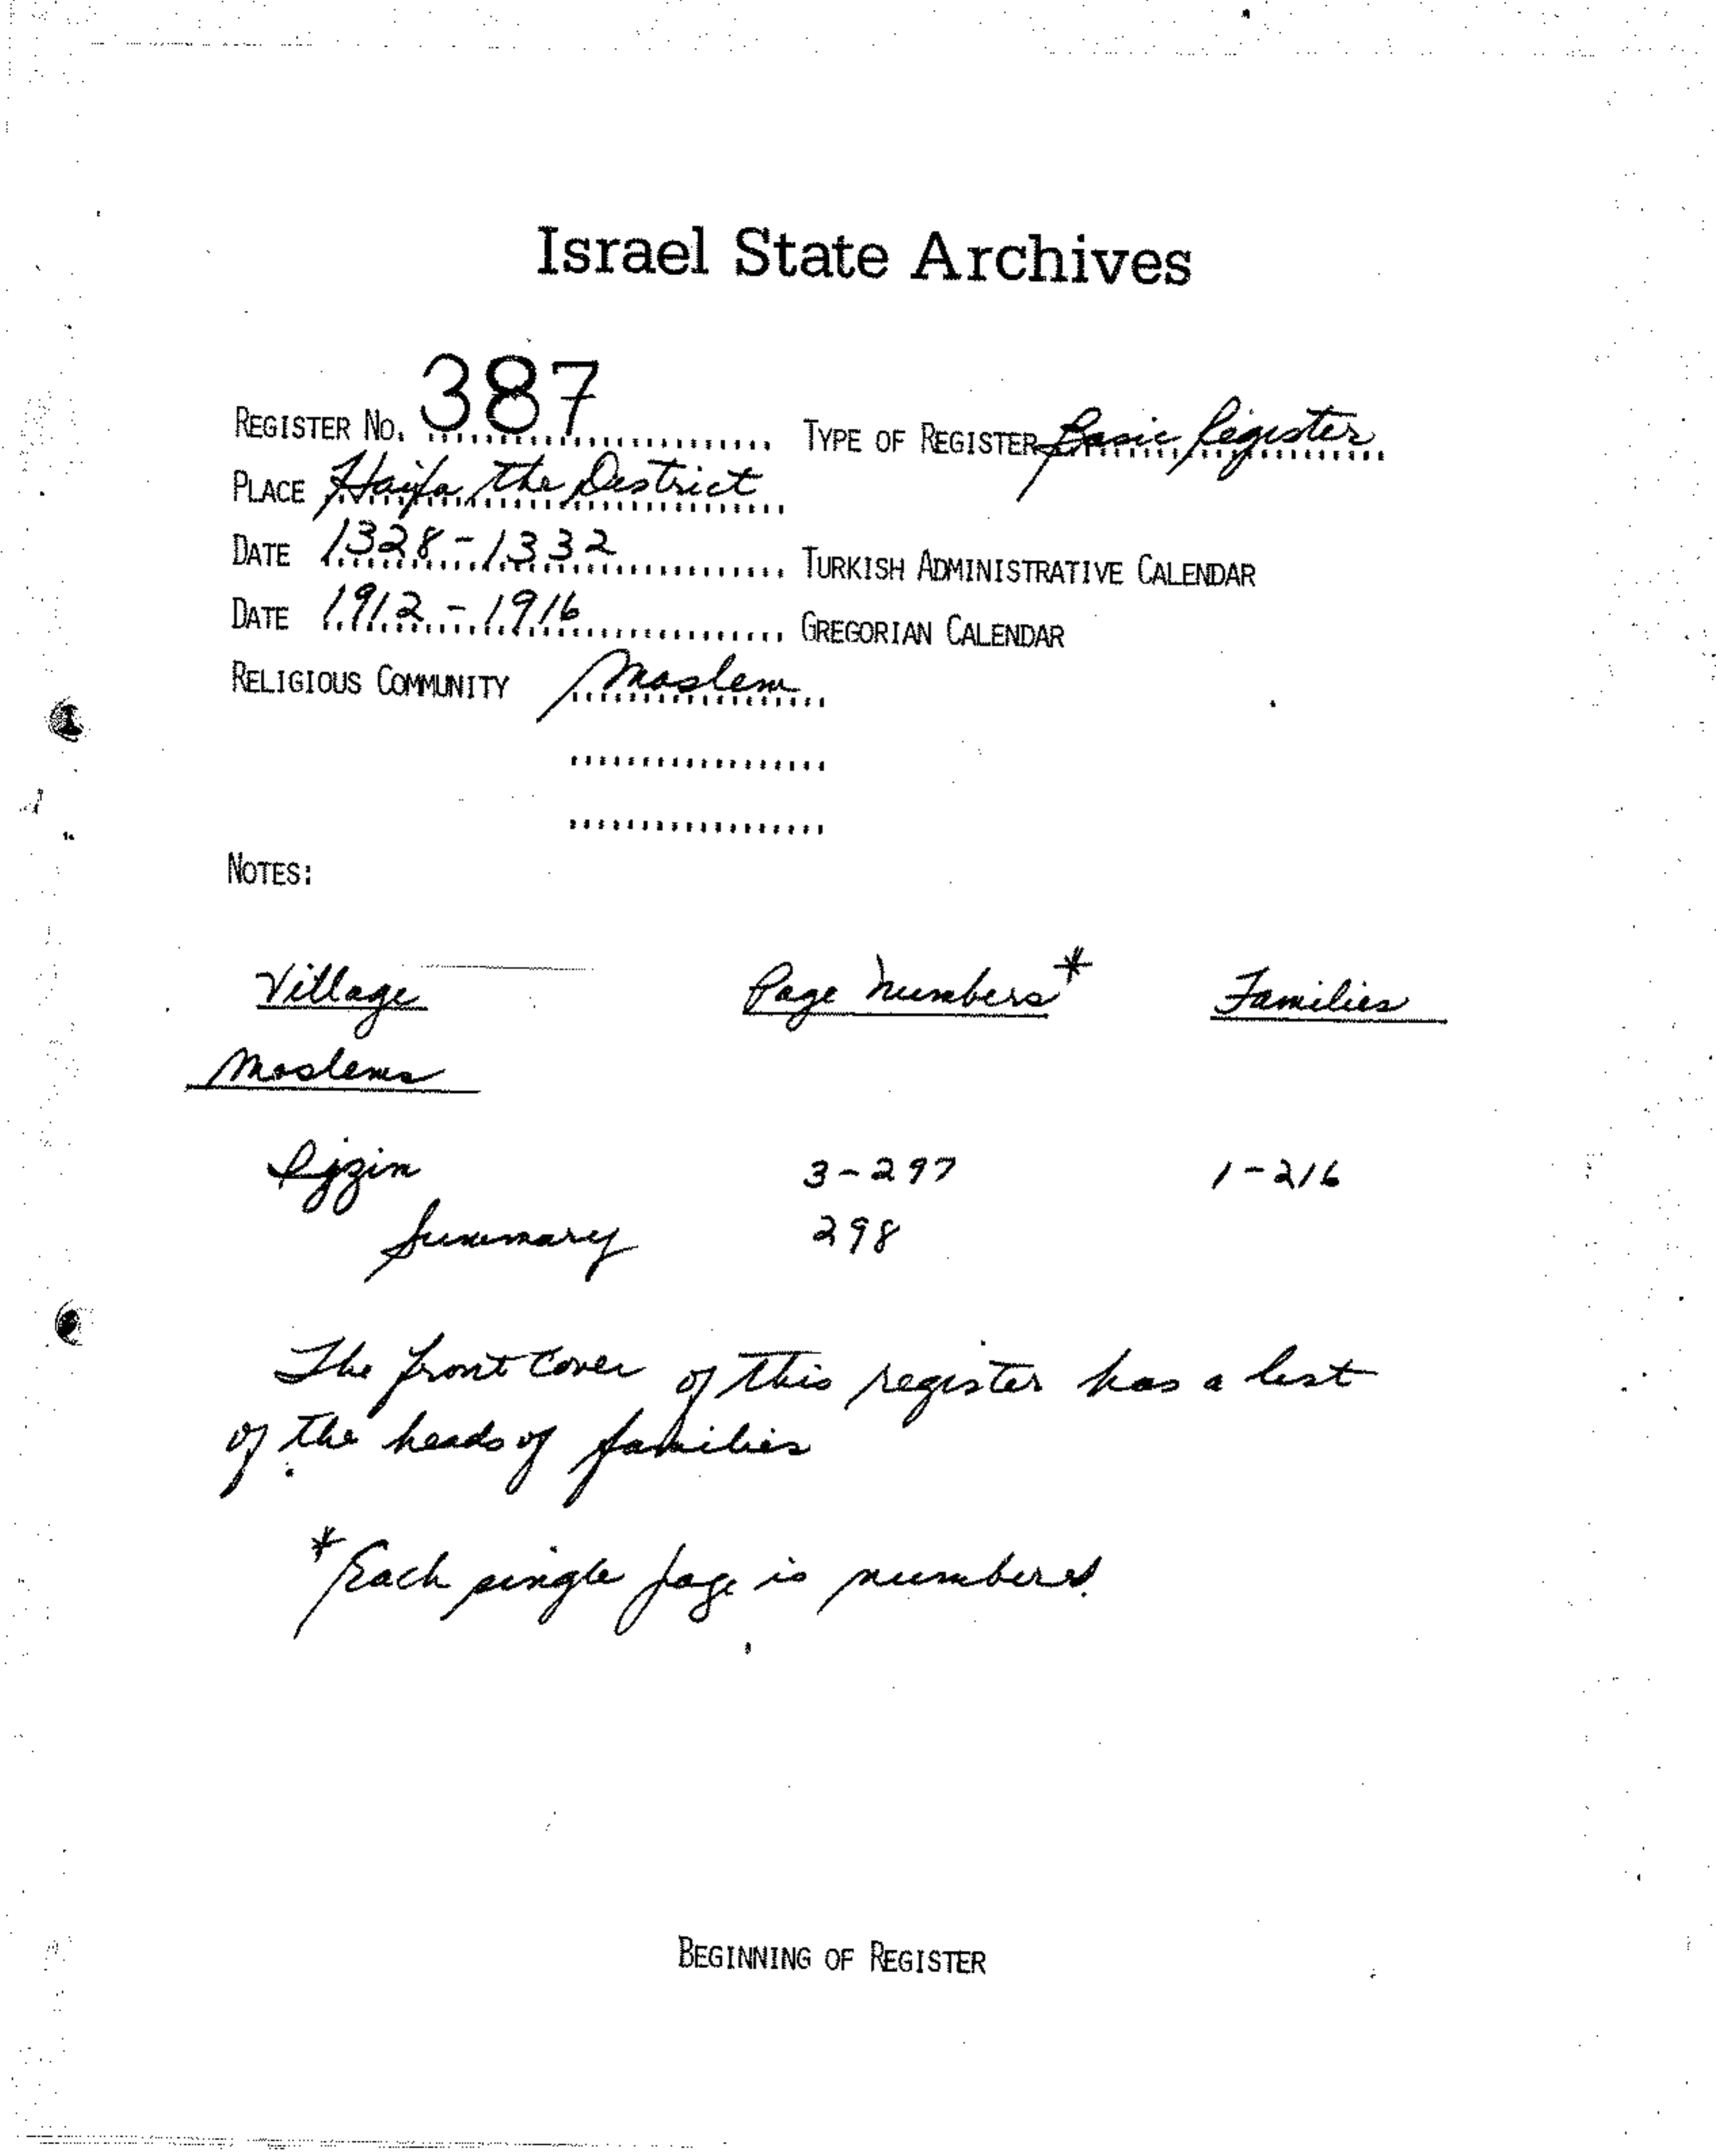 Israel State Archives
REGISTER NO. 387 TYPE OF REGISTER Basic Register
PLACE Haifa, the District
DATE 1328-1332 TURKISH ADMINISTRATIVE CALENDAR
DATE 1912-1916 GREGORIAN CALENDAR
RELIGIOUS COMMUNITY Moslem
NOTES:
Village Page Numbers* Families
Moslems
Ijzim 3-297 1-216
Summary 298
The front cover of this register has a list
of the heads of families
*Each single page is numbered.
BEGINNING OF REGISTER